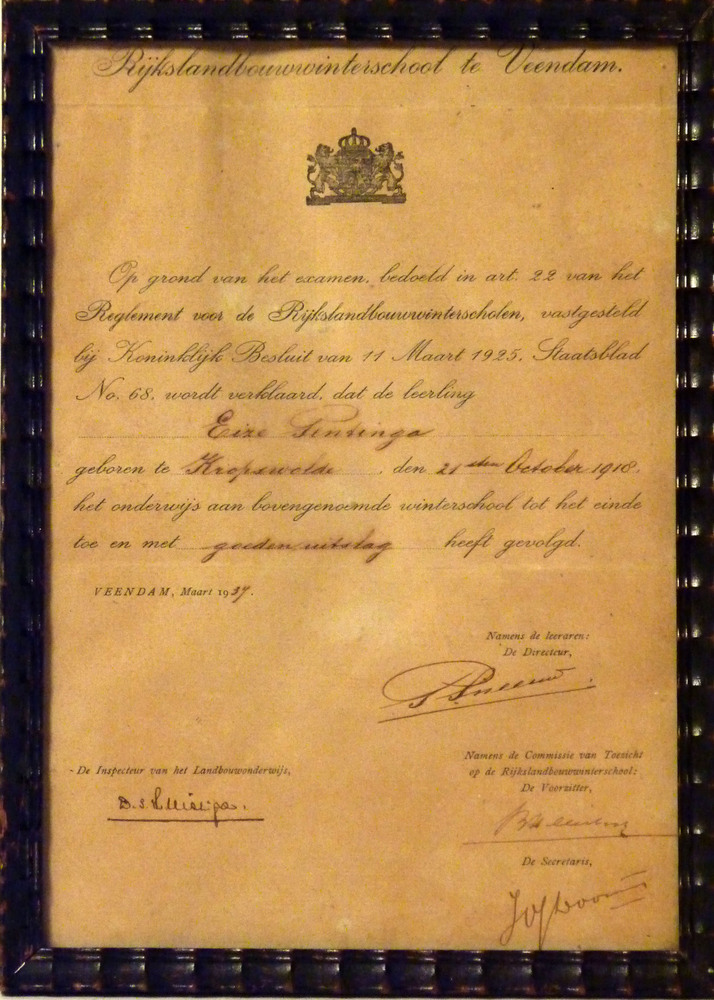 Rijkslandbouwwinterschool te Veendam.
Op grond van het examen, bedoeld in art. 22 van het
Reglement voor de Rijkslandbouwwinterscholen, vastgesteld
bij Koninklijk Besluit van 11 Maart 1925, Staatsblad
No. 68, wordt verklaard, dat de leerling
Eize
geboren te Kropswolde, den 21sten October 1918,
het onderwijs aan bovengenoemde winterschool tot het einde
toe en met goeden uitslag heeft gevolgd.
VEENDAM, Maart 1937.
Namens de leeraren:
De Directeur,
De Inspecteur van het Landbouwonderwijs,
Namens de Commissie van Toezicht
op de Rijkslandbouwwinterschool:
De Voorzitter,
De Secretaris,